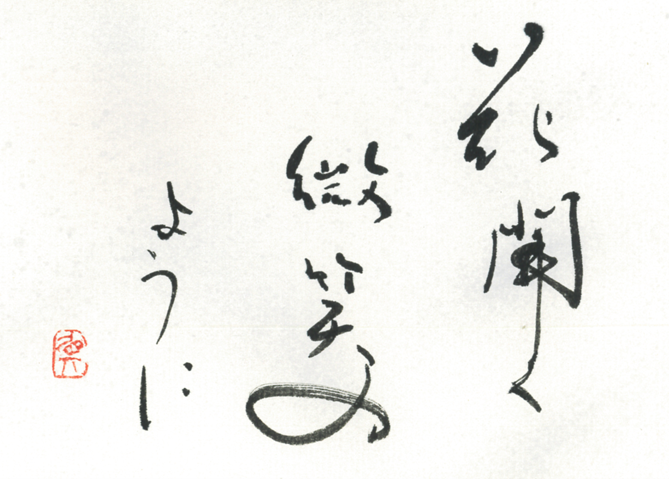 花開く
微笑の
ように